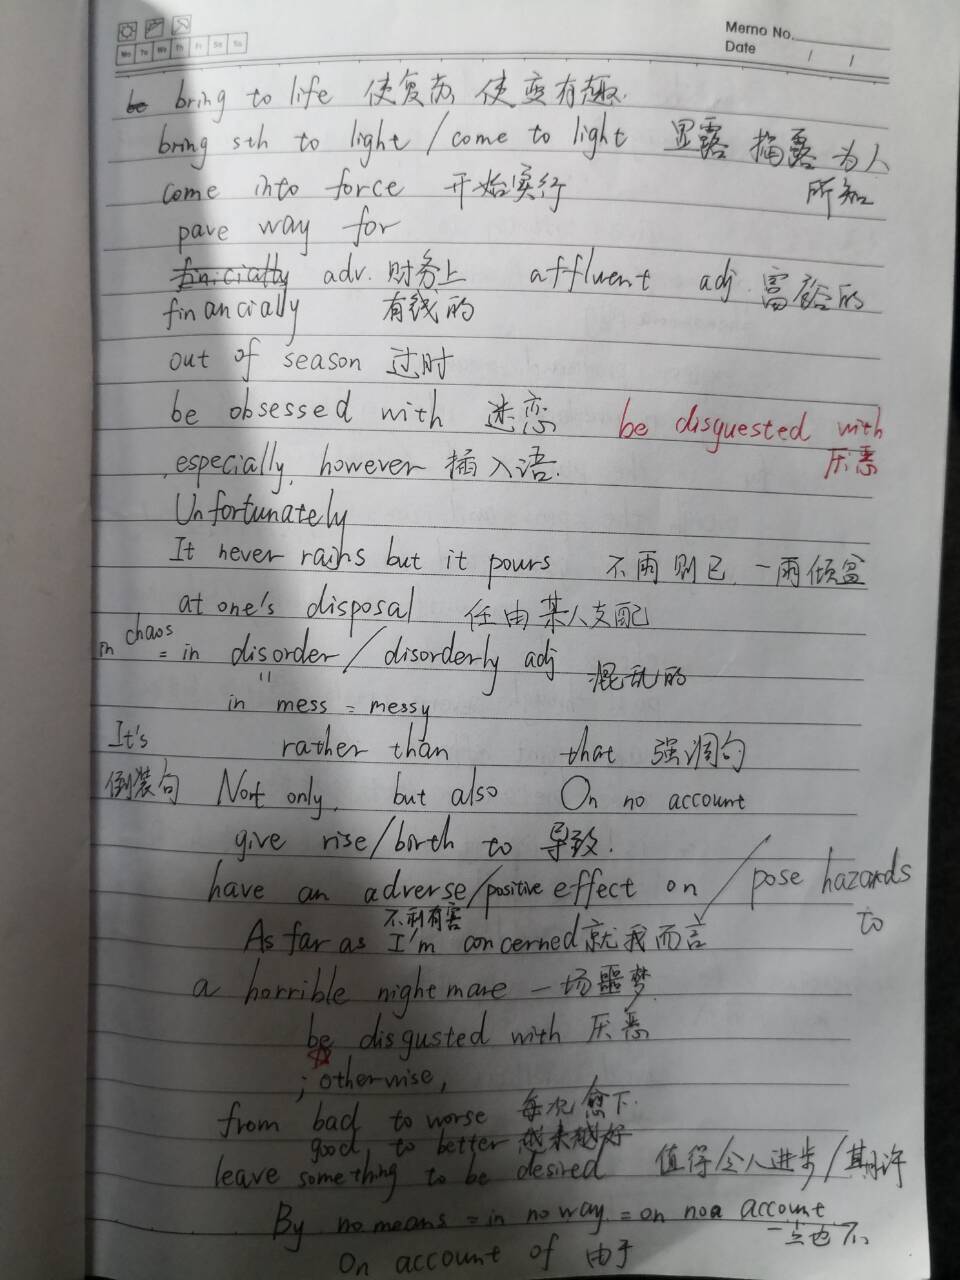 Memo No.
Date / /
Mo Tu We Th Fr Sa Su
bring to life 使复苏 使变有趣.
bring sth to light / come to light 显露 揭露 为人
所知
come into force 开始实行
pave way for
adv. 财务上 affluent adj. 富裕的
financially 有钱的
out of season 过时
be obsessed with 迷恋 be disguested with
厌恶
, especially, however 插入语.
Unfortunately
It never rains but it pours 不雨则已, 一雨倾盆
at one's disposal 任由某人支配
in chaos
= in disorder / disorderly adj 混乱的
"
in mess = messy
It's rather than that 强调句
倒装句 Not only, but also On no account
give rise/birth to 导致.
have an adverse/positive effect on / pose hazards
to
不利有害
As far as I'm concerned 就我而言
a horrible nightmare 一场噩梦
be disgusted with 厌恶
; otherwise,
from bad to worse 每况愈下.
good to better 越来越好
leave something to be desired 值得令人进步/期许
By no means = in no way = on no account
一点也不
On account of 由于